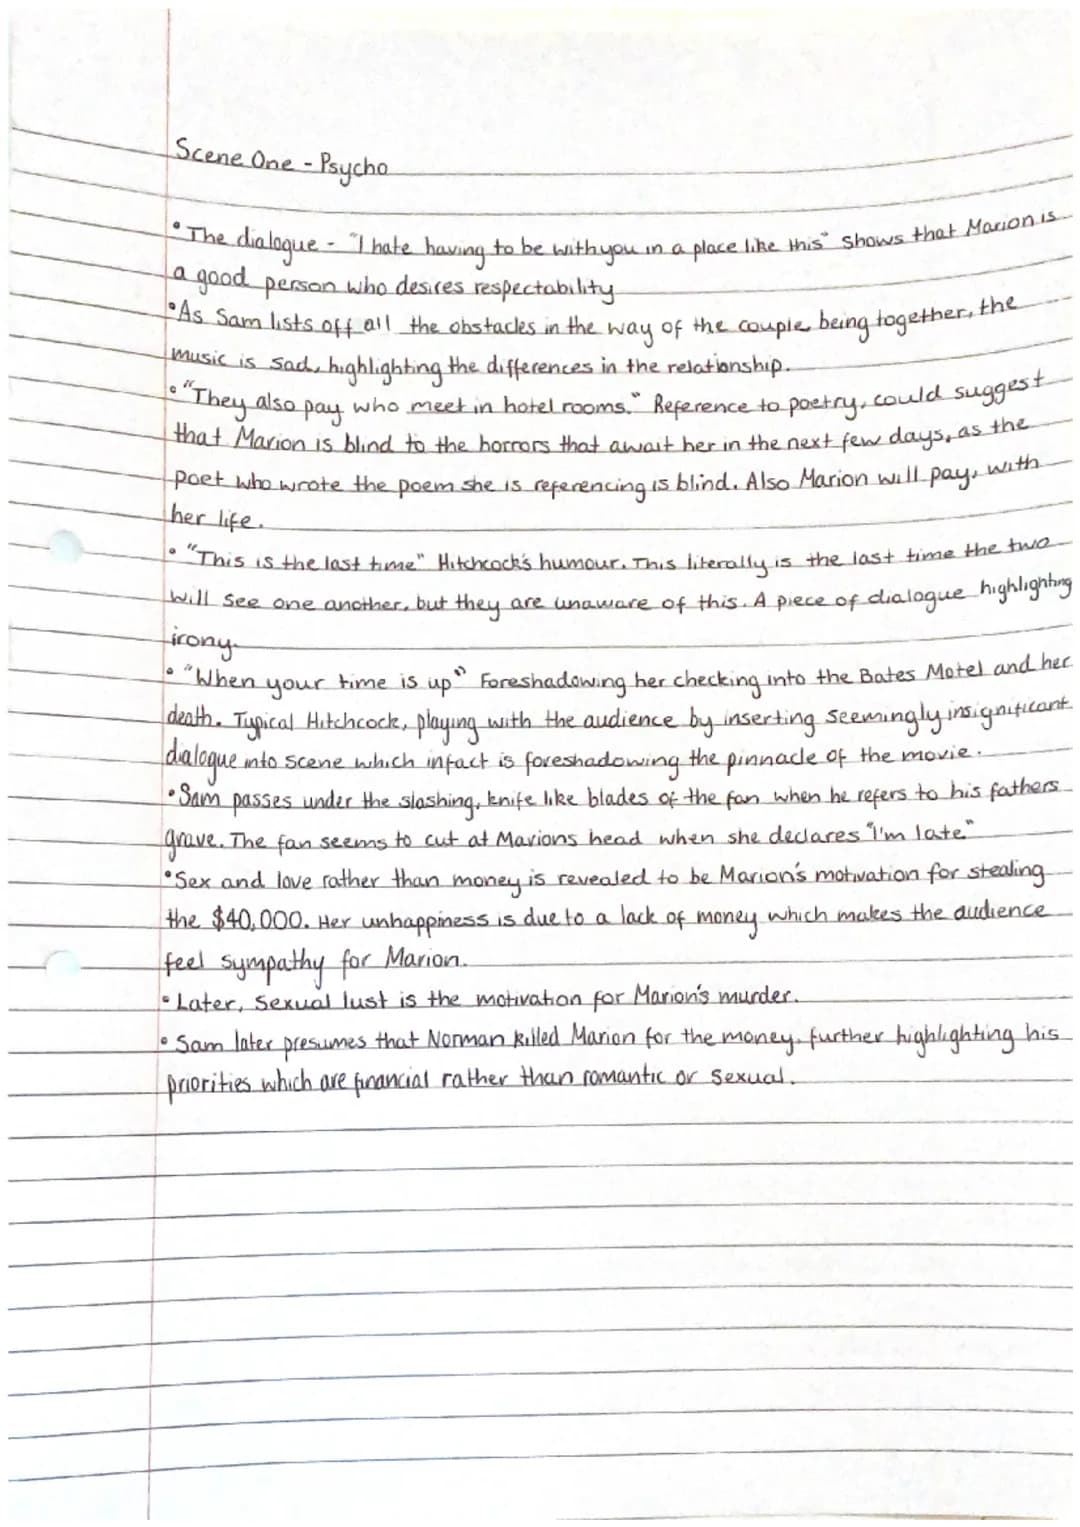 Scene One - Psycho
• The dialogue - "I hate having to be with you in a place like this" shows that Marion is
a good person who desires respectability
• As Sam lists off all the obstacles in the way of the couple being together, the
music is sad, highlighting the differences in the relationship.
• "They also pay who meet in hotel rooms." Reference to poetry, could suggest
that Marion is blind to the horrors that await her in the next few days, as the
poet who wrote the poem she is referencing is blind. Also Marion will pay, with
her life.
• "This is the last time" Hitchcock's humour. This literally is the last time the two
will see one another, but they are unaware of this. A piece of dialogue highlighting
irony.
• "When your time is up" Foreshadowing her checking into the Bates Motel and her
death. Typical Hitchcock, playing with the audience by inserting seemingly insignificant
dialogue into scene which infact is foreshadowing the pinnacle of the movie.
• Sam passes under the slashing, knife like blades of the fan when he refers to his fathers
grave. The fan seems to cut at Marions head when she declares "I'm late"
• Sex and love rather than money is revealed to be Marion's motivation for stealing
the $40,000. Her unhappiness is due to a lack of money which makes the audience
feel sympathy for Marion.
• Later, sexual lust is the motivation for Marion's murder.
• Sam later presumes that Norman killed Marion for the money, further highlighting his
priorities which are financial rather than romantic or sexual.